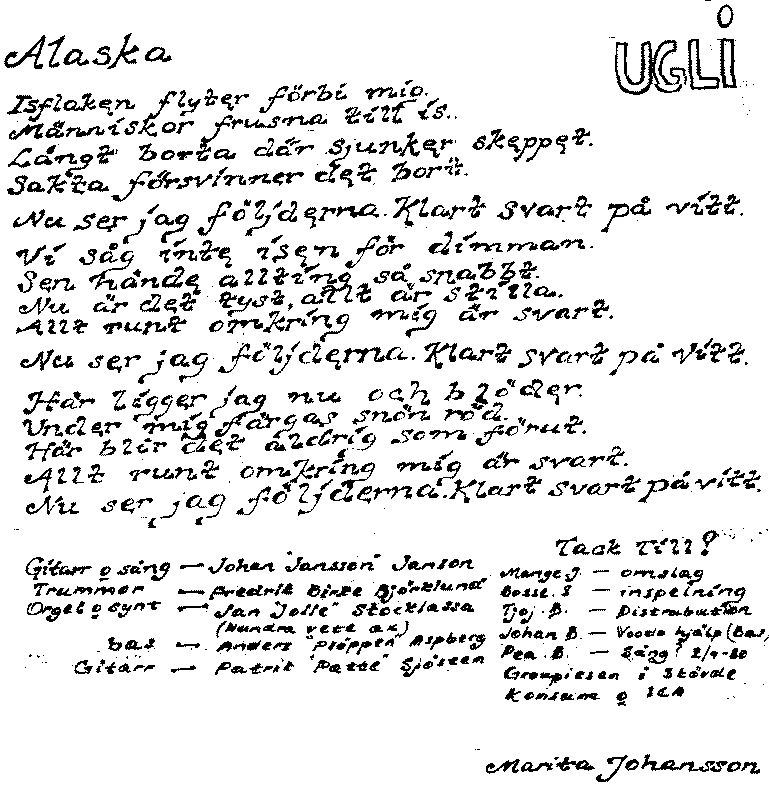 UGLI
Alaska
Isflaken flyter förbi mig.
Människor frusna till is.
Långt borta där sjunker skeppet.
Sakta försvinner det bort.
Nu ser jag följderna. Klart svart på vitt.
Vi såg inte isen för dimman.
Sen hände allting så snabbt.
Nu är det tyst, allt är stilla.
Allt runt omkring mig är svart.
Nu ser jag följderna. Klart svart på vitt.
Här ligger jag nu och blöder.
Under mig färgas snön röd.
Här blir det aldrig som förut.
Allt runt omkring mig är svart.
Nu ser jag följderna. Klart svart på vitt.
Gitarr o sång — Johan "Jansson" Janson
Trummor — Fredrik Birke Björklund
Orgel o synt — Jan "Jolle" Stocklassa
(Hundra vete ax)
bas — Anders "Proppen" Aspberg
Gitarr — Patrik "Patte" Sjöseen
Tack till?
Mange J. — omslag
Bosse. S — inspelning
Tjoj. B. — Distrabution
Johan B. — Voodo hjälp (Bas,
Pea. B. — Sång? 2/4-80
Groupiesen i Skövde
Konsum o ICA
Marita Johansson